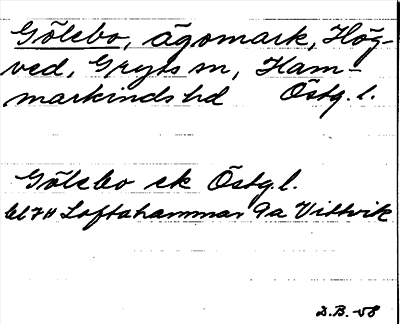 Gölebo, ägomark, Hög-
ved, Gryts sn, Ham-
markinds hd Östg. l.
Gölebo ek Östg. l.
bl 74 Loftahammar 9a Vittvik
D.B. -58